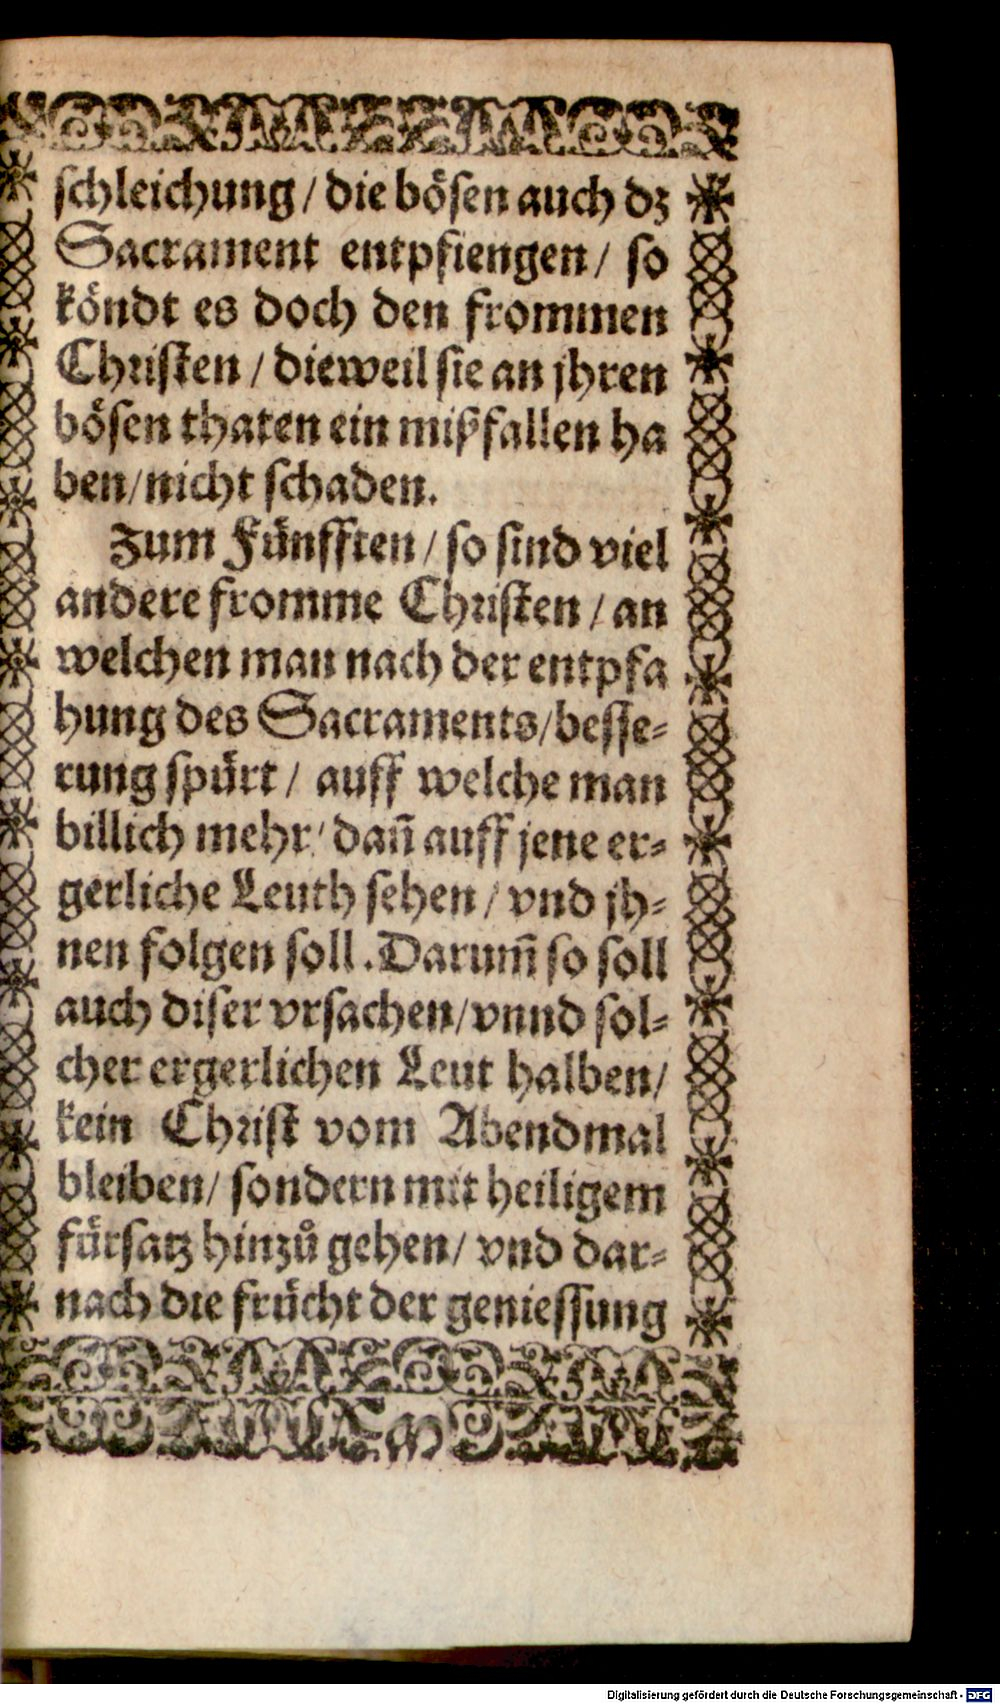 schleichung / die bösen auch dz
Sacrament entpfiengen / so
köndt es doch den frommen
Christen / dieweil sie an jhren
bösen thaten ein mißfallen ha
ben / nicht schaden.
Zum Fünfften / so sind viel
andere fromme Christen / an
welchen man nach der entpfa
hung des Sacraments / besse-
rung spürt / auff welche man
billich mehr / dañ auff jene er-
gerliche Leuth sehen / vnd jh-
nen folgen soll. Darum̃ so soll
auch diser vrsachen / vnnd sol-
cher ergerlichen Leut halben /
kein Christ vom Abendmal
bleiben / sondern mit heiligem
fürsatz hinzů gehen / vnd dar-
nach die frücht der geniessung
Digitalisierung gefördert durch die Deutsche Forschungsgemeinschaft - DFG